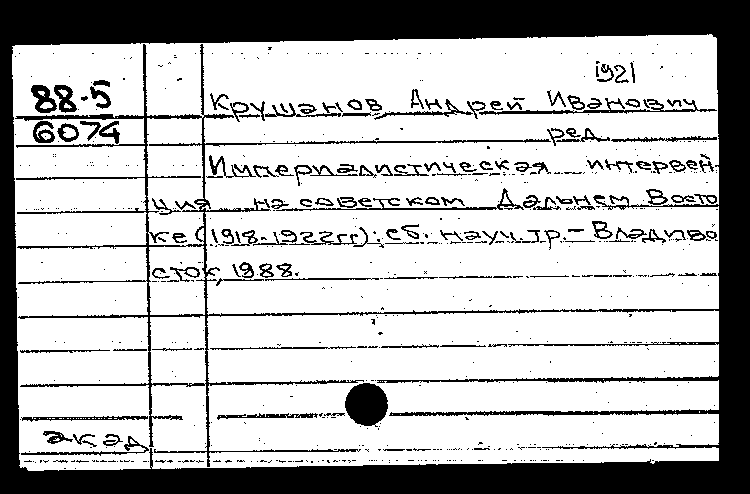 1921
88-5
Крушанов, Андрей Иванович
6074
ред.
Империалистическая интервен-
ция на советском Дальнем Восто
ке (1918-1922гг): сб. науч. тр. - Владиво
сток, 1988.
акад